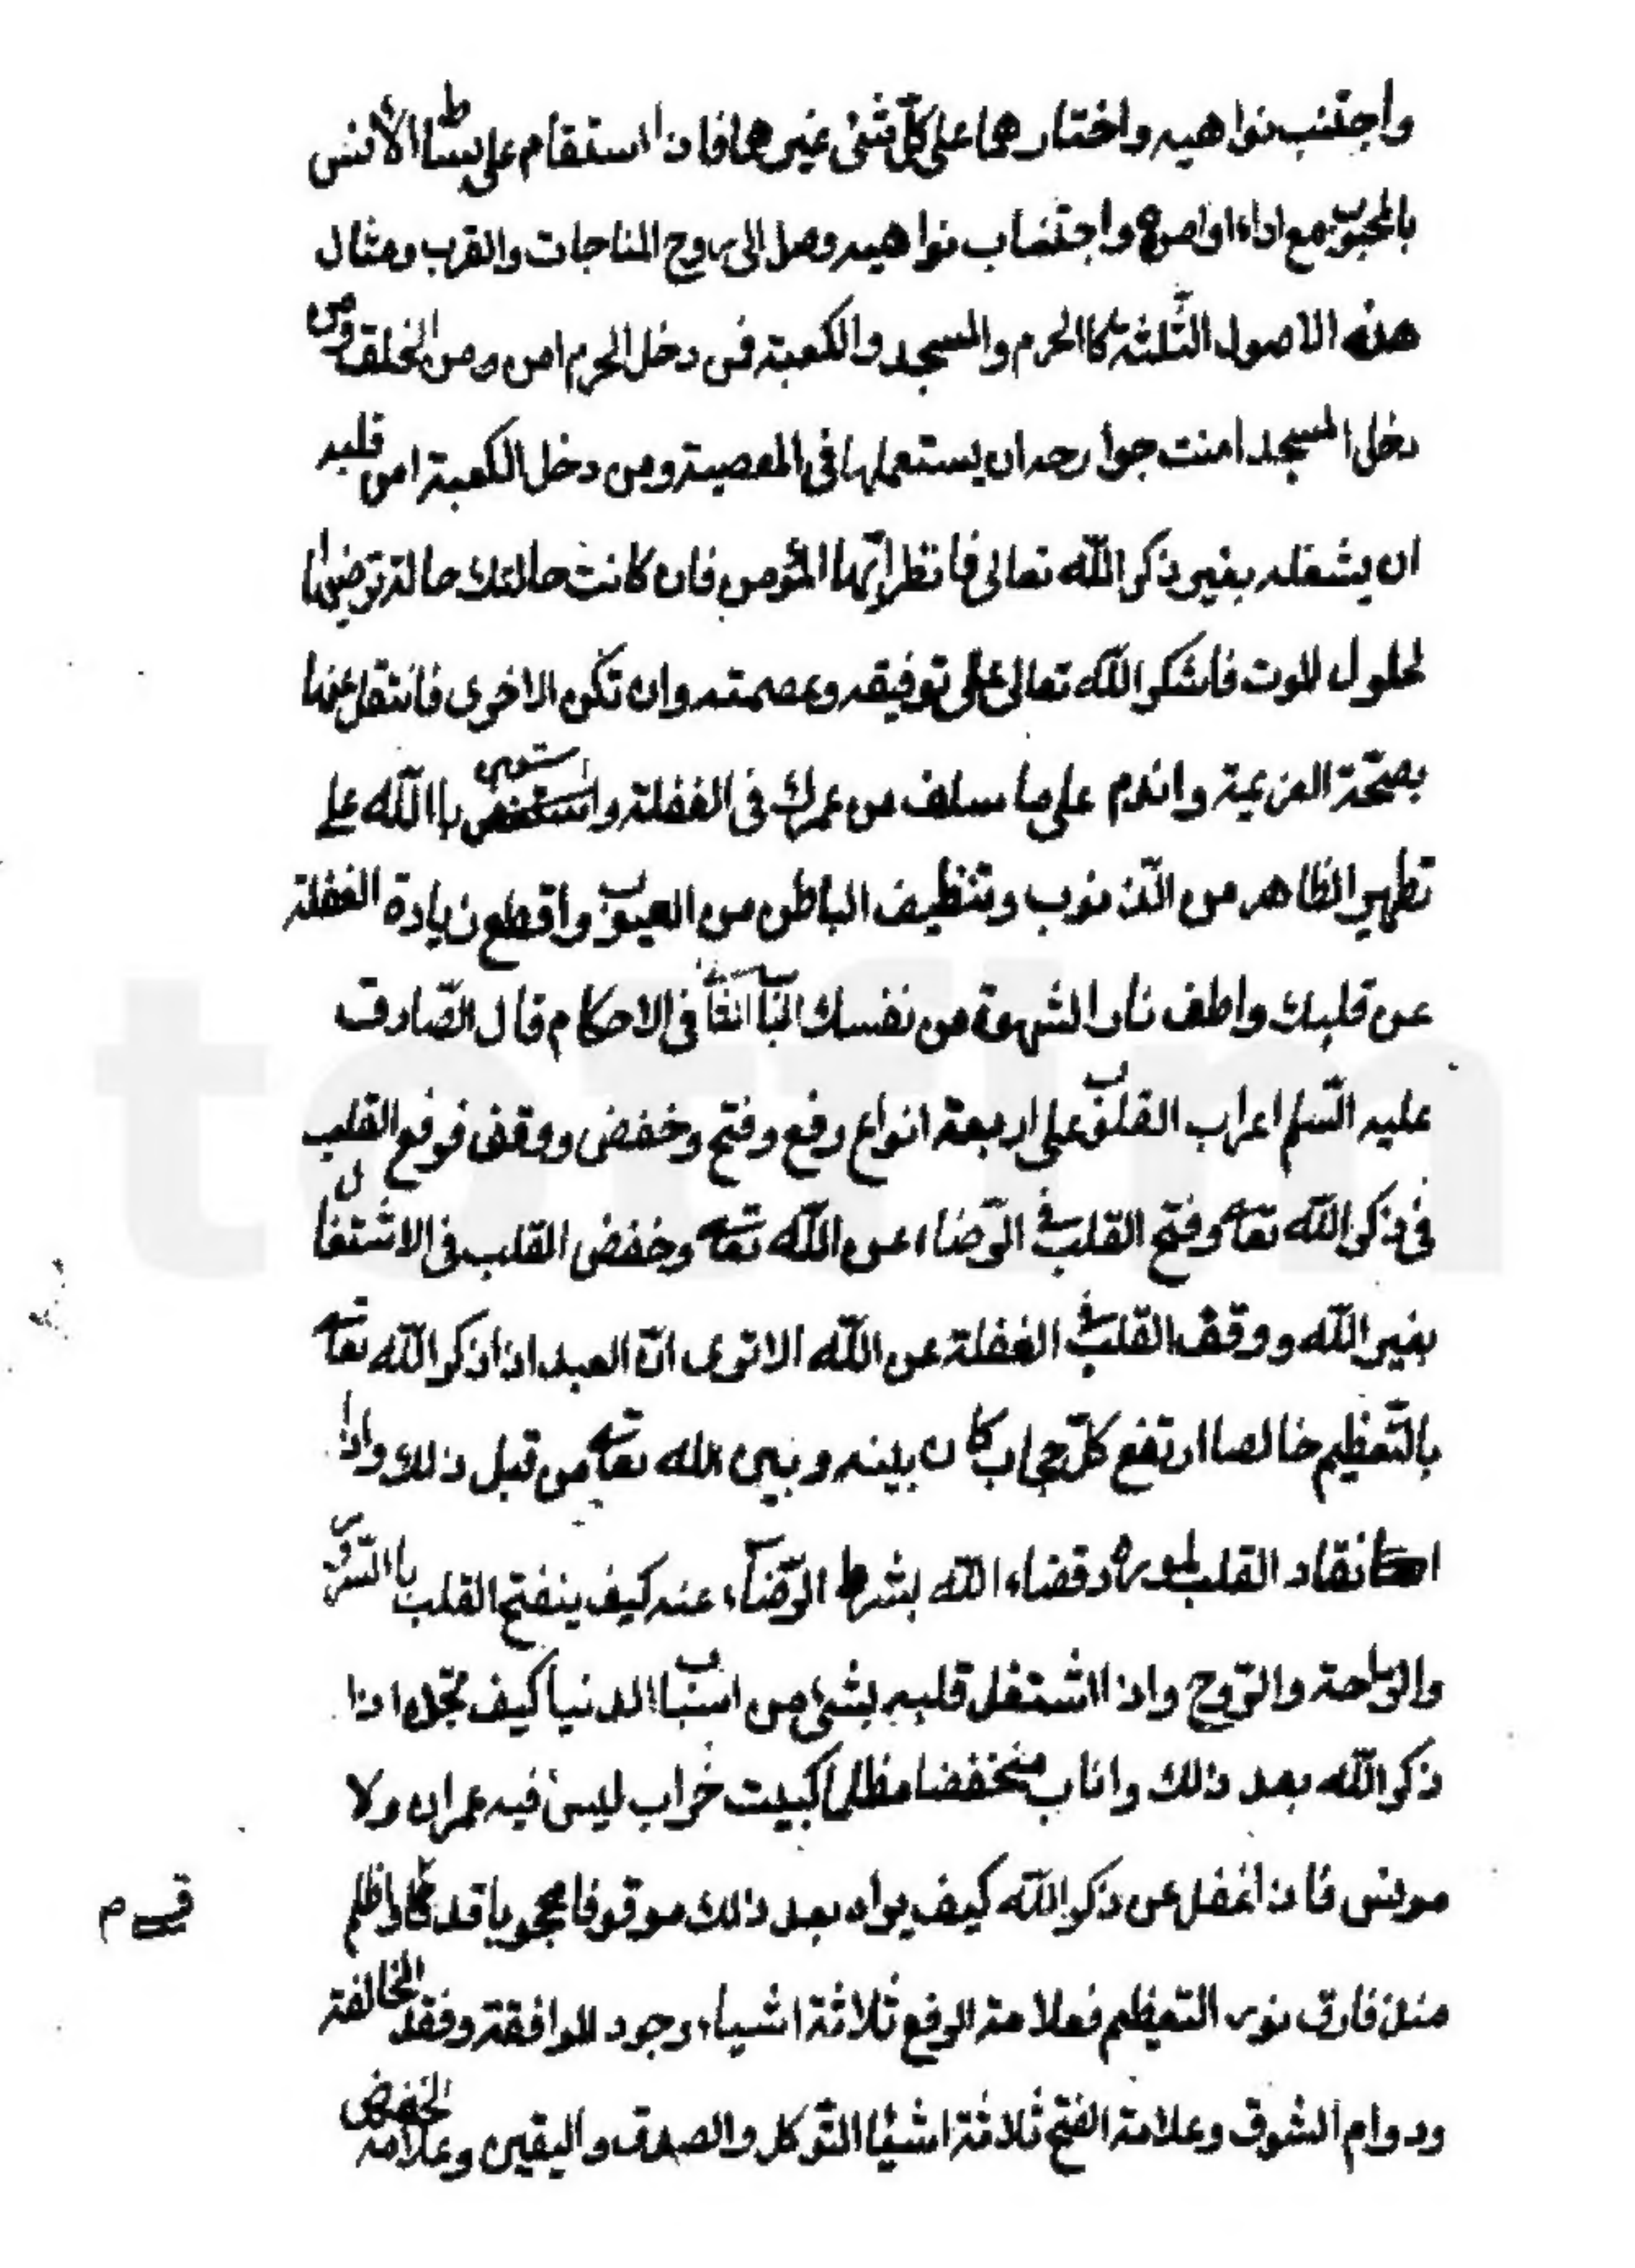 واجتنب نواهيه واختارهما على كلّ شئ غيرهما فاذا استقام على بساط الأنس
بالمحبوب مع اداء اوامره واجتناب نواهيه وصل الى روح المناجات والقرب ومثال
هذه الاصول الثّلثة كاالحرم والمسجد والكعبة فمن دخل الحرم امن من الخلق ومن
دخل المسجد امنت جوارحه ان يستعملها فى المعصية ومن دخل الكعبة امن قلبه
ان يشغله بغير ذكر اللّه تعالى فانظر ايّها المؤمن فان كانت حالتك حالة ترضيها
لحلول الموت فاشكر اللّه تعالى على توفيقه وعصمته وان تكن الاخرى فانتقل عنها
بصحّة العزيمة واندم على ما سلف من عمرك فى الغفلة واستعن باللّه على
تطهير الظاهر من الذّنوب وتنظيف الباطن من العيوب واقطع زيادة الغفلة
عن قلبك واطف نار الشهوة من نفسك الباب الثانى فى الاحكام قال الصّادق
عليه السّلم اعراب القلوب على اربعة انواع رفع وفتح وخفض ووقف فرفع القلب
فى ذكر اللّه تعالى وفتح القلب فى الرّضاء عن اللّه تعالى وخفض القلب فى الاشتغال
بغير اللّه ووقف القلب فى الغفلة عن اللّه الا ترى انّ العبد اذا ذكر اللّه تعالى
بالتّعظيم خالصا ارتفع كلّ حجاب كان بينه وبين الله تعالى من قبل ذلك واذا
انقاد القلب لمورد قضاء اللّه بشرط الرّضاء عنه كيف ينفتح القلب باالسّرور
والرّاحة والرّوح واذا اشتغل قلبه بشئ من اسباب الدنيا كيف تجده اذا
ذكر اللّه بعد ذلك واناب منخفضا مظلما كبيت خراب ليس فيه عمران ولا
مونس فاذا غفل عن ذكر اللّه كيف يراه بعد ذلك موقوفا محجوبا قد قسى واظلم
منذ فارق نور التعظيم فعلامة الرفع ثلاثة اشياء وجود الموافقة وفقد المخالفة
ودوام الشوق وعلامة الفتح ثلاثة اشيا التّوكل والصدق واليقين وعلامة الخفض